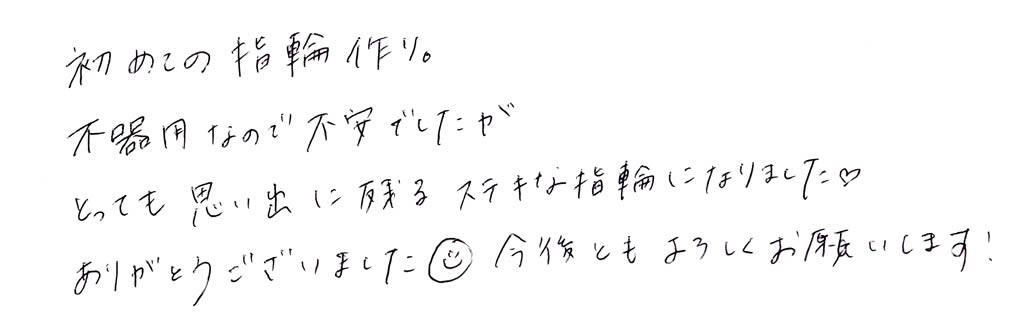 初めての指輪作り。
不器用なので不安でしたが
とっても思い出に残るステキな指輪になりました♡
ありがとうございました☺今後ともよろしくお願いします!